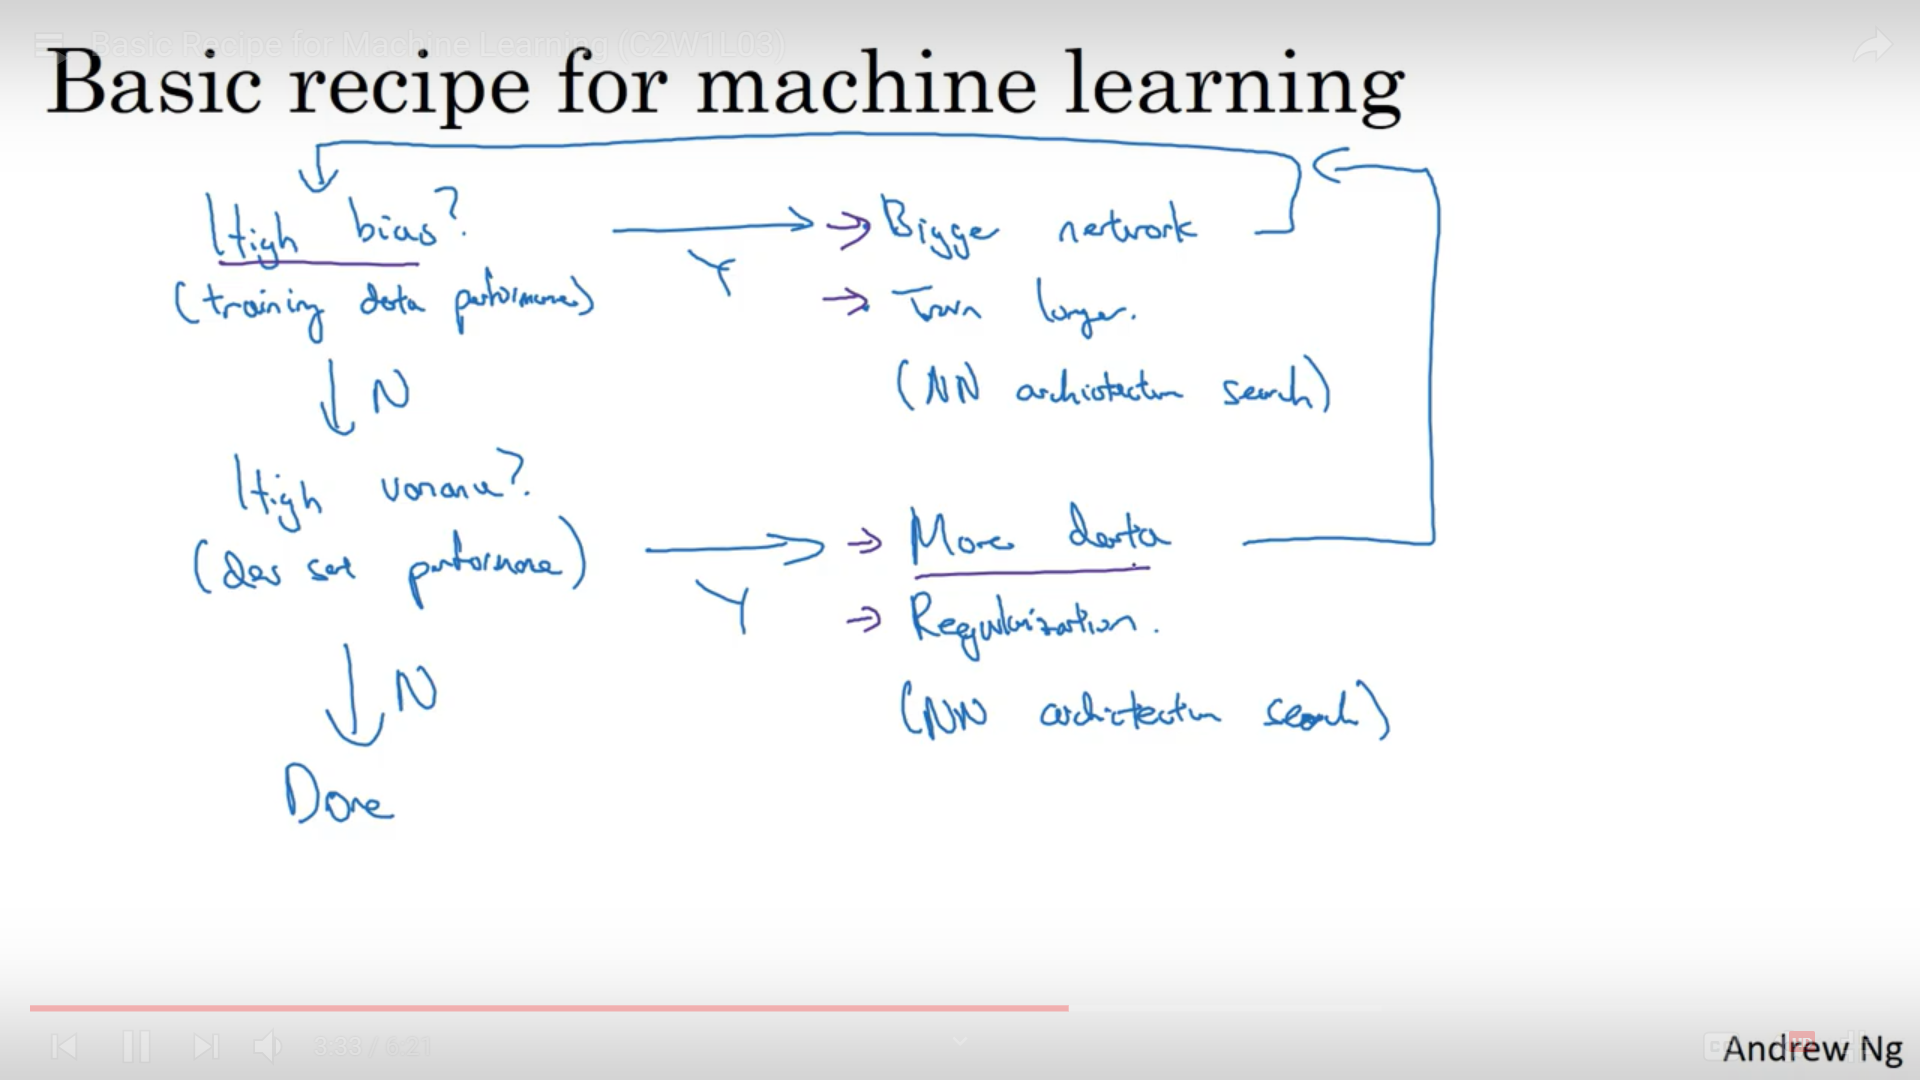 Basic Recipe for Machine Learning (C2W1L03)
Basic recipe for machine learning
High bias? Y Bigger network
(training data performance) Train longer.
N (NN architecture search)
High variance?
(dev set performance) Y More data
Regularization.
N (NN architecture search)
Done
3:33 / 6:21
CC HD
Andrew Ng